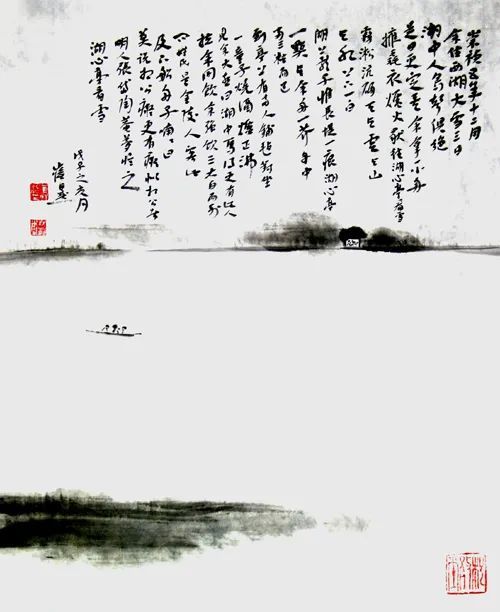 崇祯五年十二月
余住西湖大雪三日
湖中人鸟声俱绝
是日更定矣余拿一小舟
拥毳衣炉火独往湖心亭看雪
雾凇沆砀天与云与山
与水上下一白
湖上影子惟长堤一痕湖心亭
一点与余舟一芥舟中
人两三粒而已
到亭上有两人铺毡对坐
一童子烧酒炉正沸
见余大喜曰湖中焉得更有此人
拉余同饮余强饮三大白而别
问其姓氏是金陵人客此
及下船舟子喃喃曰
莫说相公痴更有痴似相公者
明人张岱陶庵梦忆之
湖心亭看雪